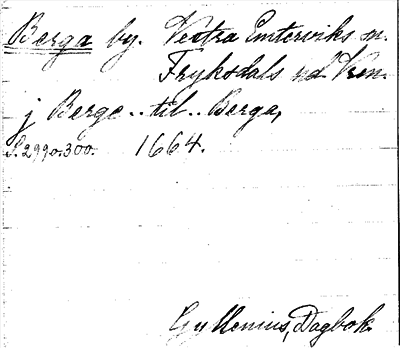 Berga by. Vestra Emterviks sn.
Fryksdals hd Verm.
j Berge..til..Berga,
S. 299o.300. 1664.
Gyllenius, Dagbok.